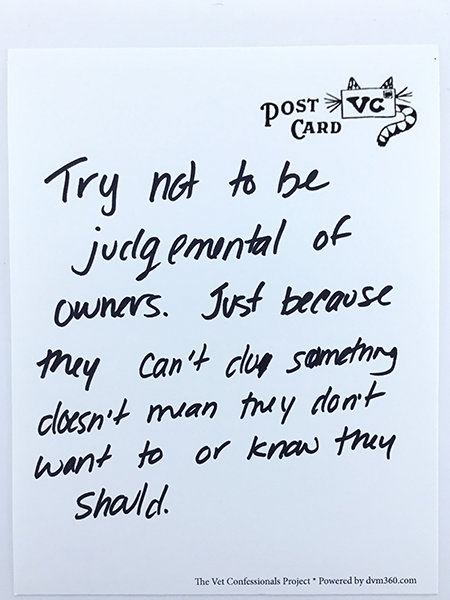 POST
CARD
VC
Try not to be
judgemental of
owners. Just because
they can't do something
doesn't mean they don't
want to or know they
should.
The Vet Confessionals Project * Powered by dvm360.com